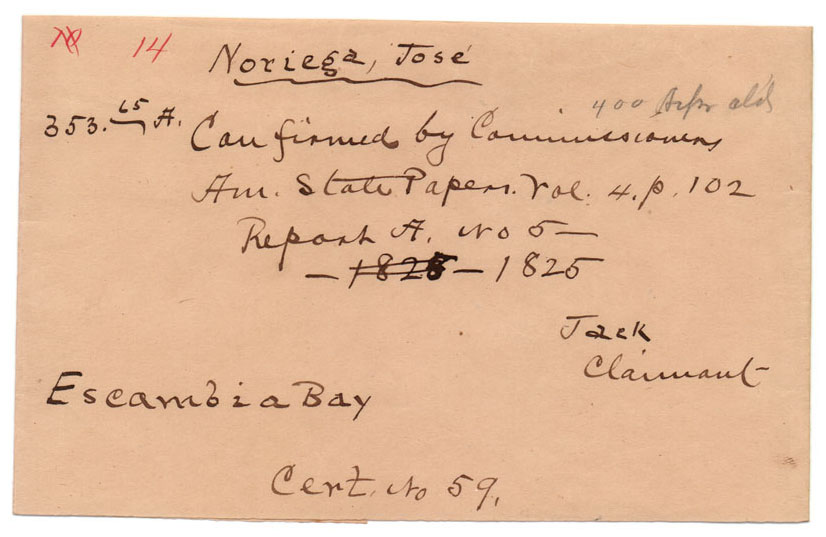 14
Noriega, José
400
353.65 A. Confirmed by Commissioners
Am. State Papers. Vol. 4. p. 102
Report A. No 5—
— 1825
Jack
Claimant
Escambia Bay
Cert. No 59.